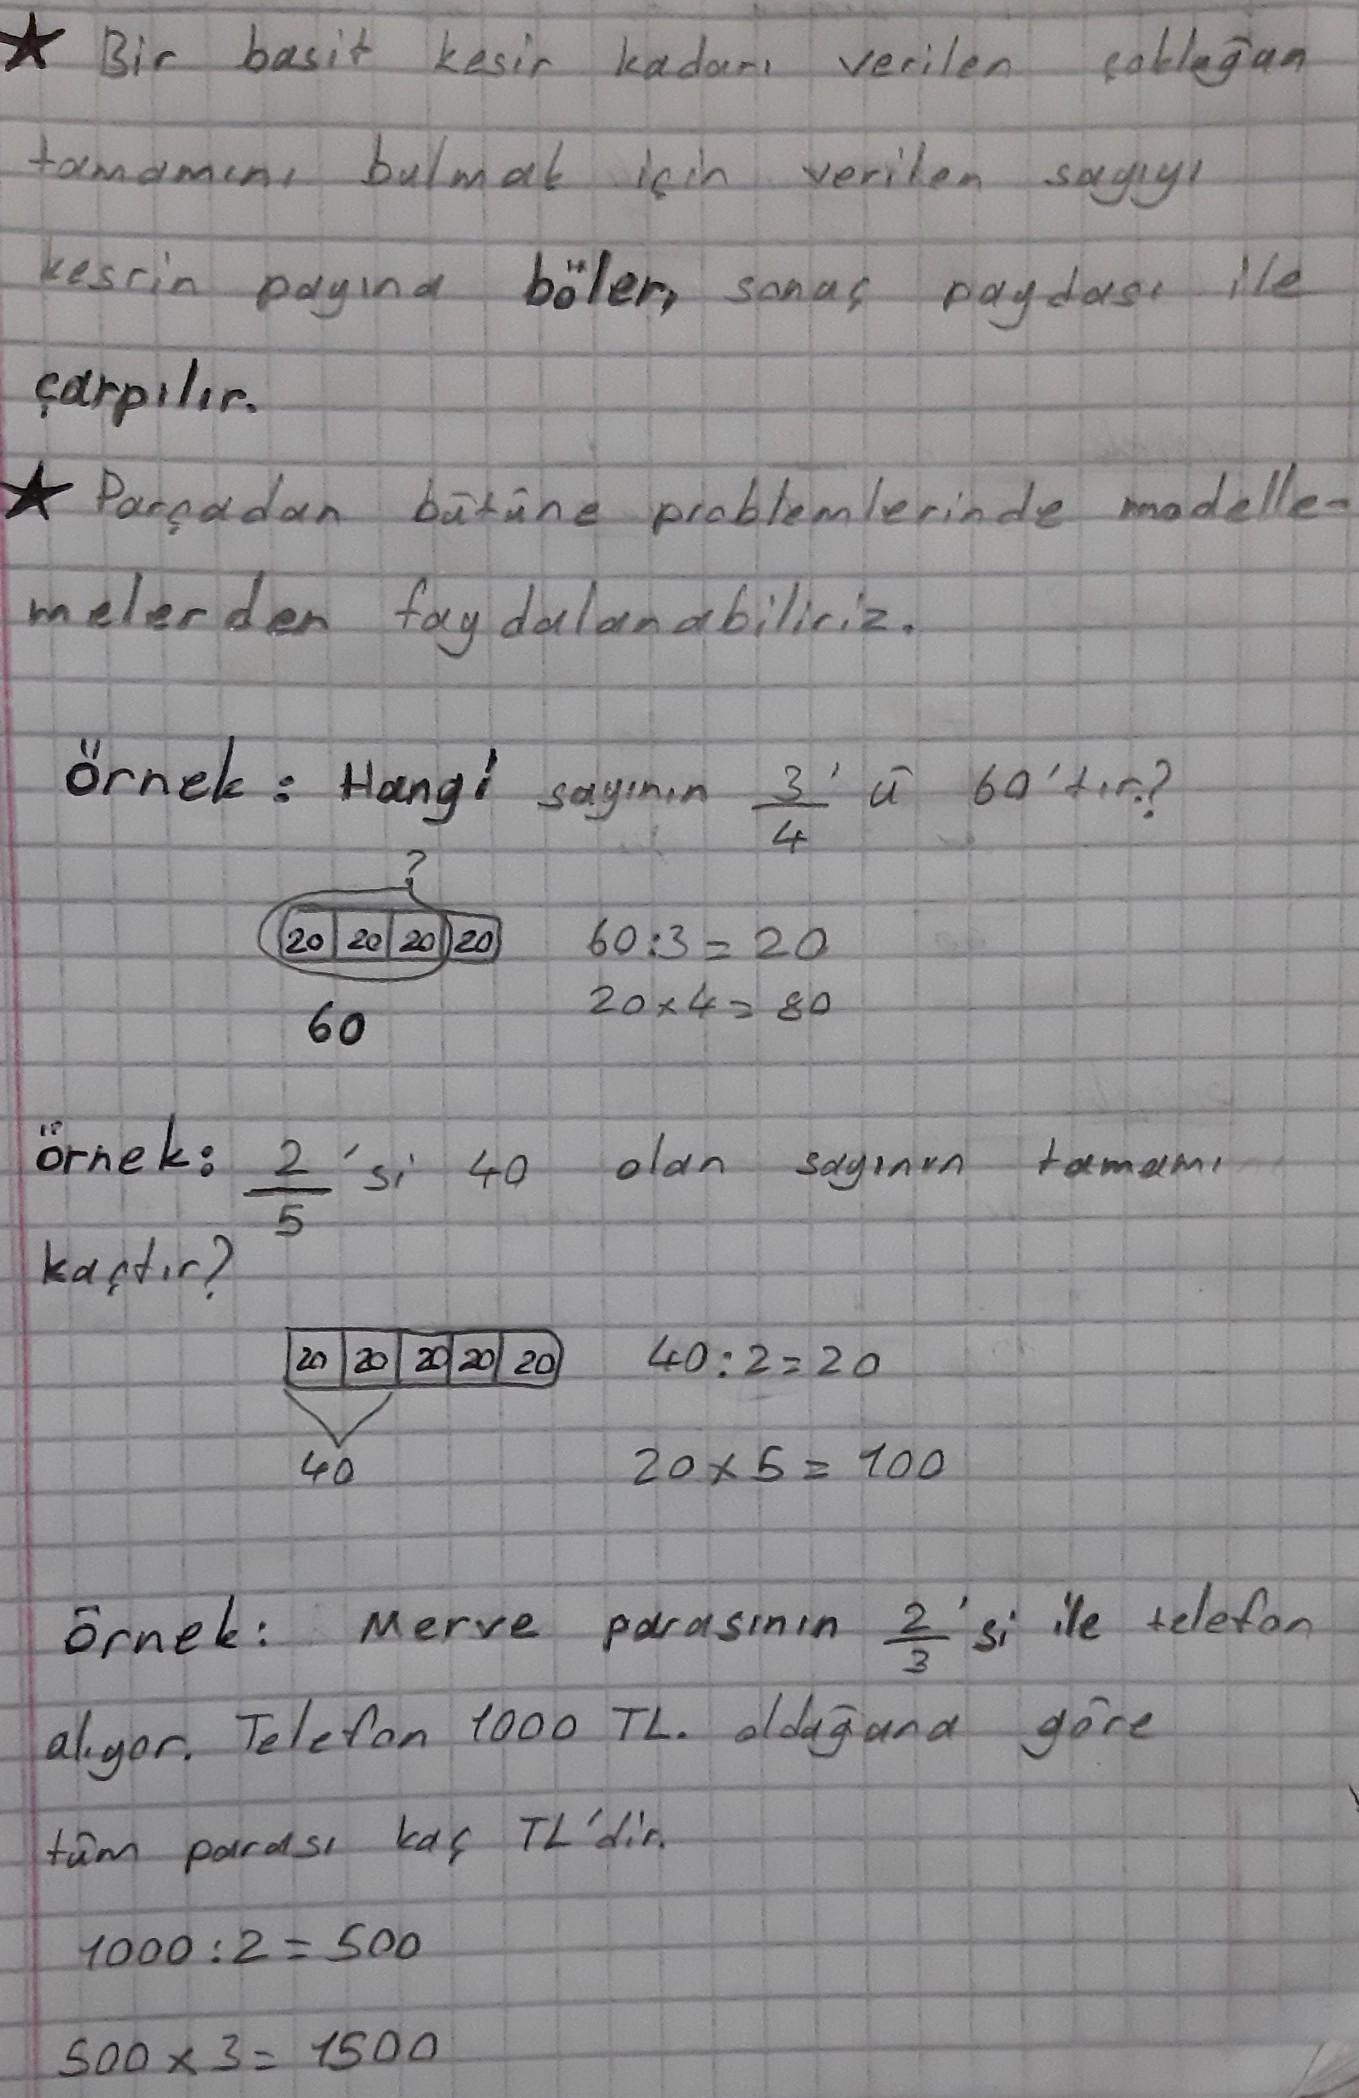 ★ Bir basit kesir kadarı verilen çokluğun
tamamını bulmak için verilen sayıyı
kesrin payına böler, sonuç paydası ile
çarpılır.
★ Parçadan bütüne problemlerinde modelle-
melerden faydalanabiliriz.
Örnek: Hangi sayının 3/4'ü 60'tır?
?
20 20 20 20 60:3=20
20x4=80
60
örnek: 2/5'si 40 olan sayının tamamı
kaçtır?
20 20 20 20 20 40:2=20
40 20x5=100
Örnek: Merve parasının 2/3'si ile telefon
alıyor. Telefon 1000 TL. olduğuna göre
tüm parası kaç TL'dir.
1000:2=500
500x3=1500